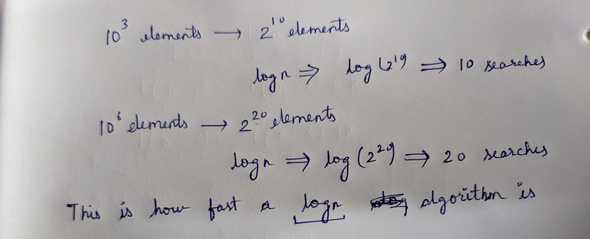 10³ elements → 2¹⁰ elements
log n ⇒ log(2¹⁰) ⇒ 10 searches
10⁶ elements → 2²⁰ elements
log n ⇒ log(2²⁰) ⇒ 20 searches
This is how fast a log n algorithm is